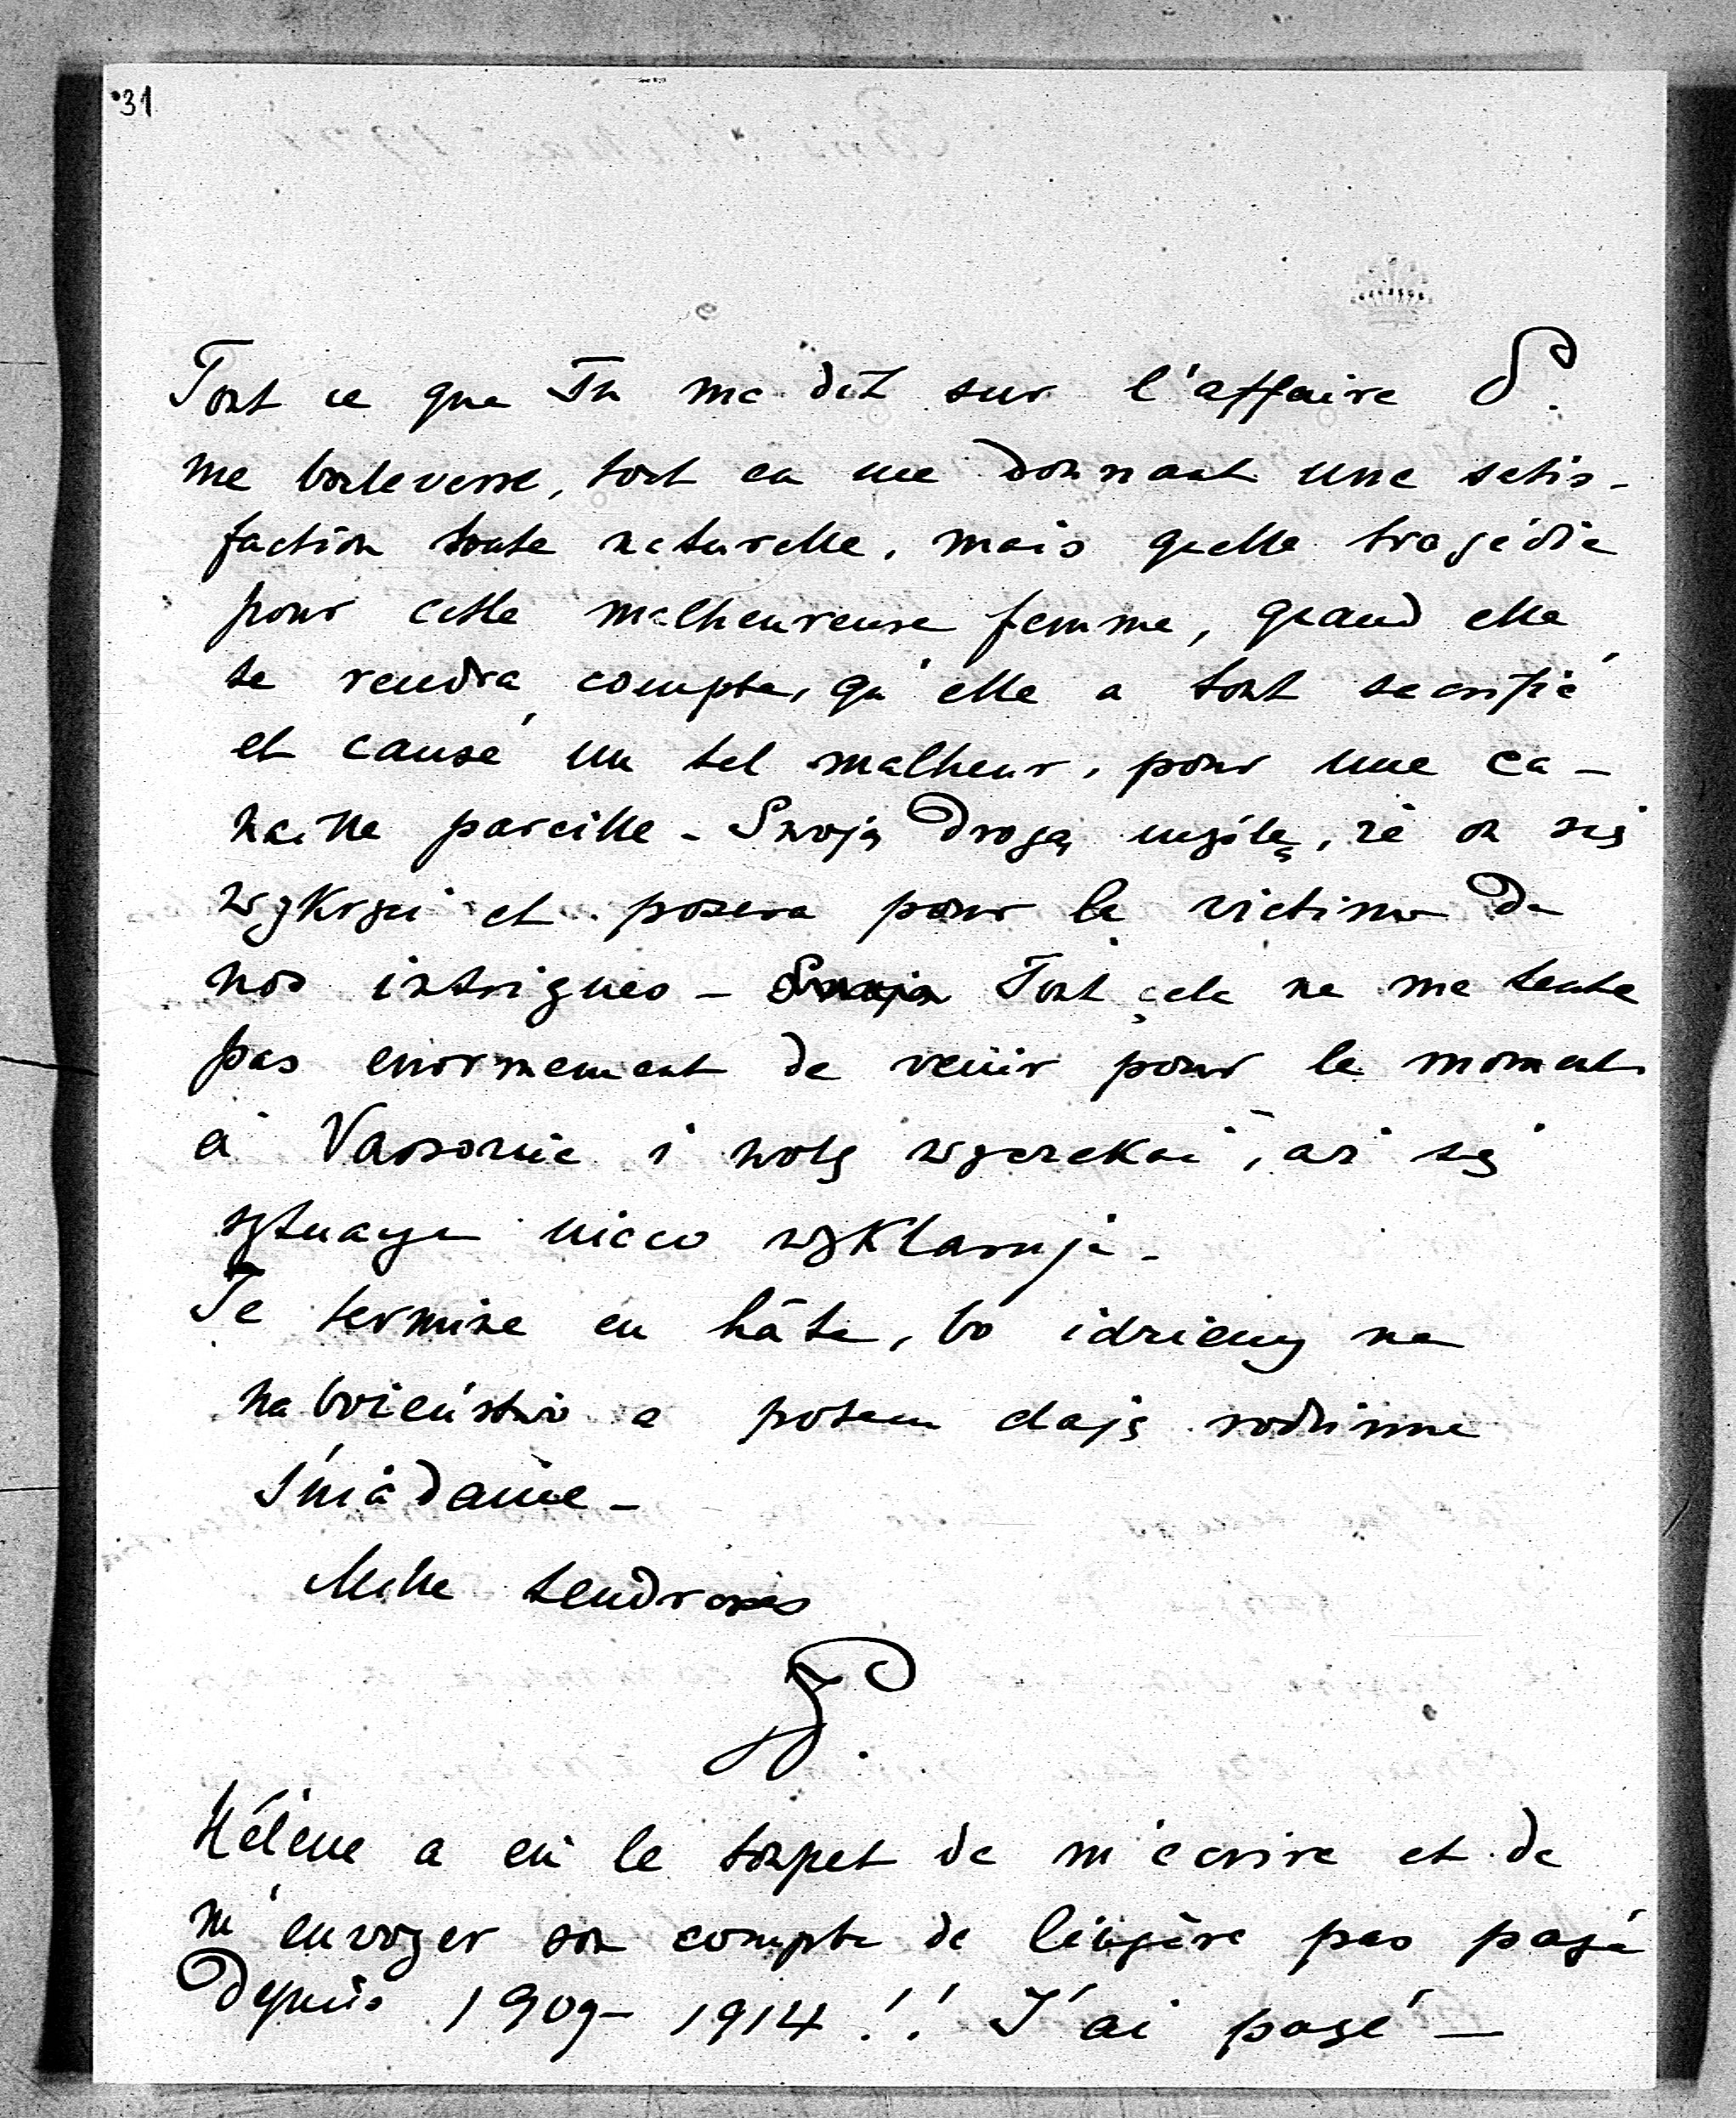 31
Tout ce que Tu me dit sur l'affaire S.
me bouleverse, tout en me donnant une satis-
faction toute naturelle, mais quelle tragédie
pour cette malheureuse femme, quand elle
se rendra compte, qu'elle a tout sacrifié
et causé un tel malheur, pour une ca-
naille pareille - Swoją drogą myślę, że on się
wykręci et posera pour la victime de
nos intrigues - Tout cela ne me tente
pas enormement de venir pour le moment
à Varsovie i wolę wyczekać, aż się
sytuacya nieco wyklaruje -
Je termine en hâte, bo idziemy na
nabożeństwo a potem daję rodzinne
śniadanie -
Mille tendresses
Hélène a eu le toupet de m'écrire et de
m'envoyer son compte de lingère pas payé
depuis 1909 - 1914!! J'ai payé -